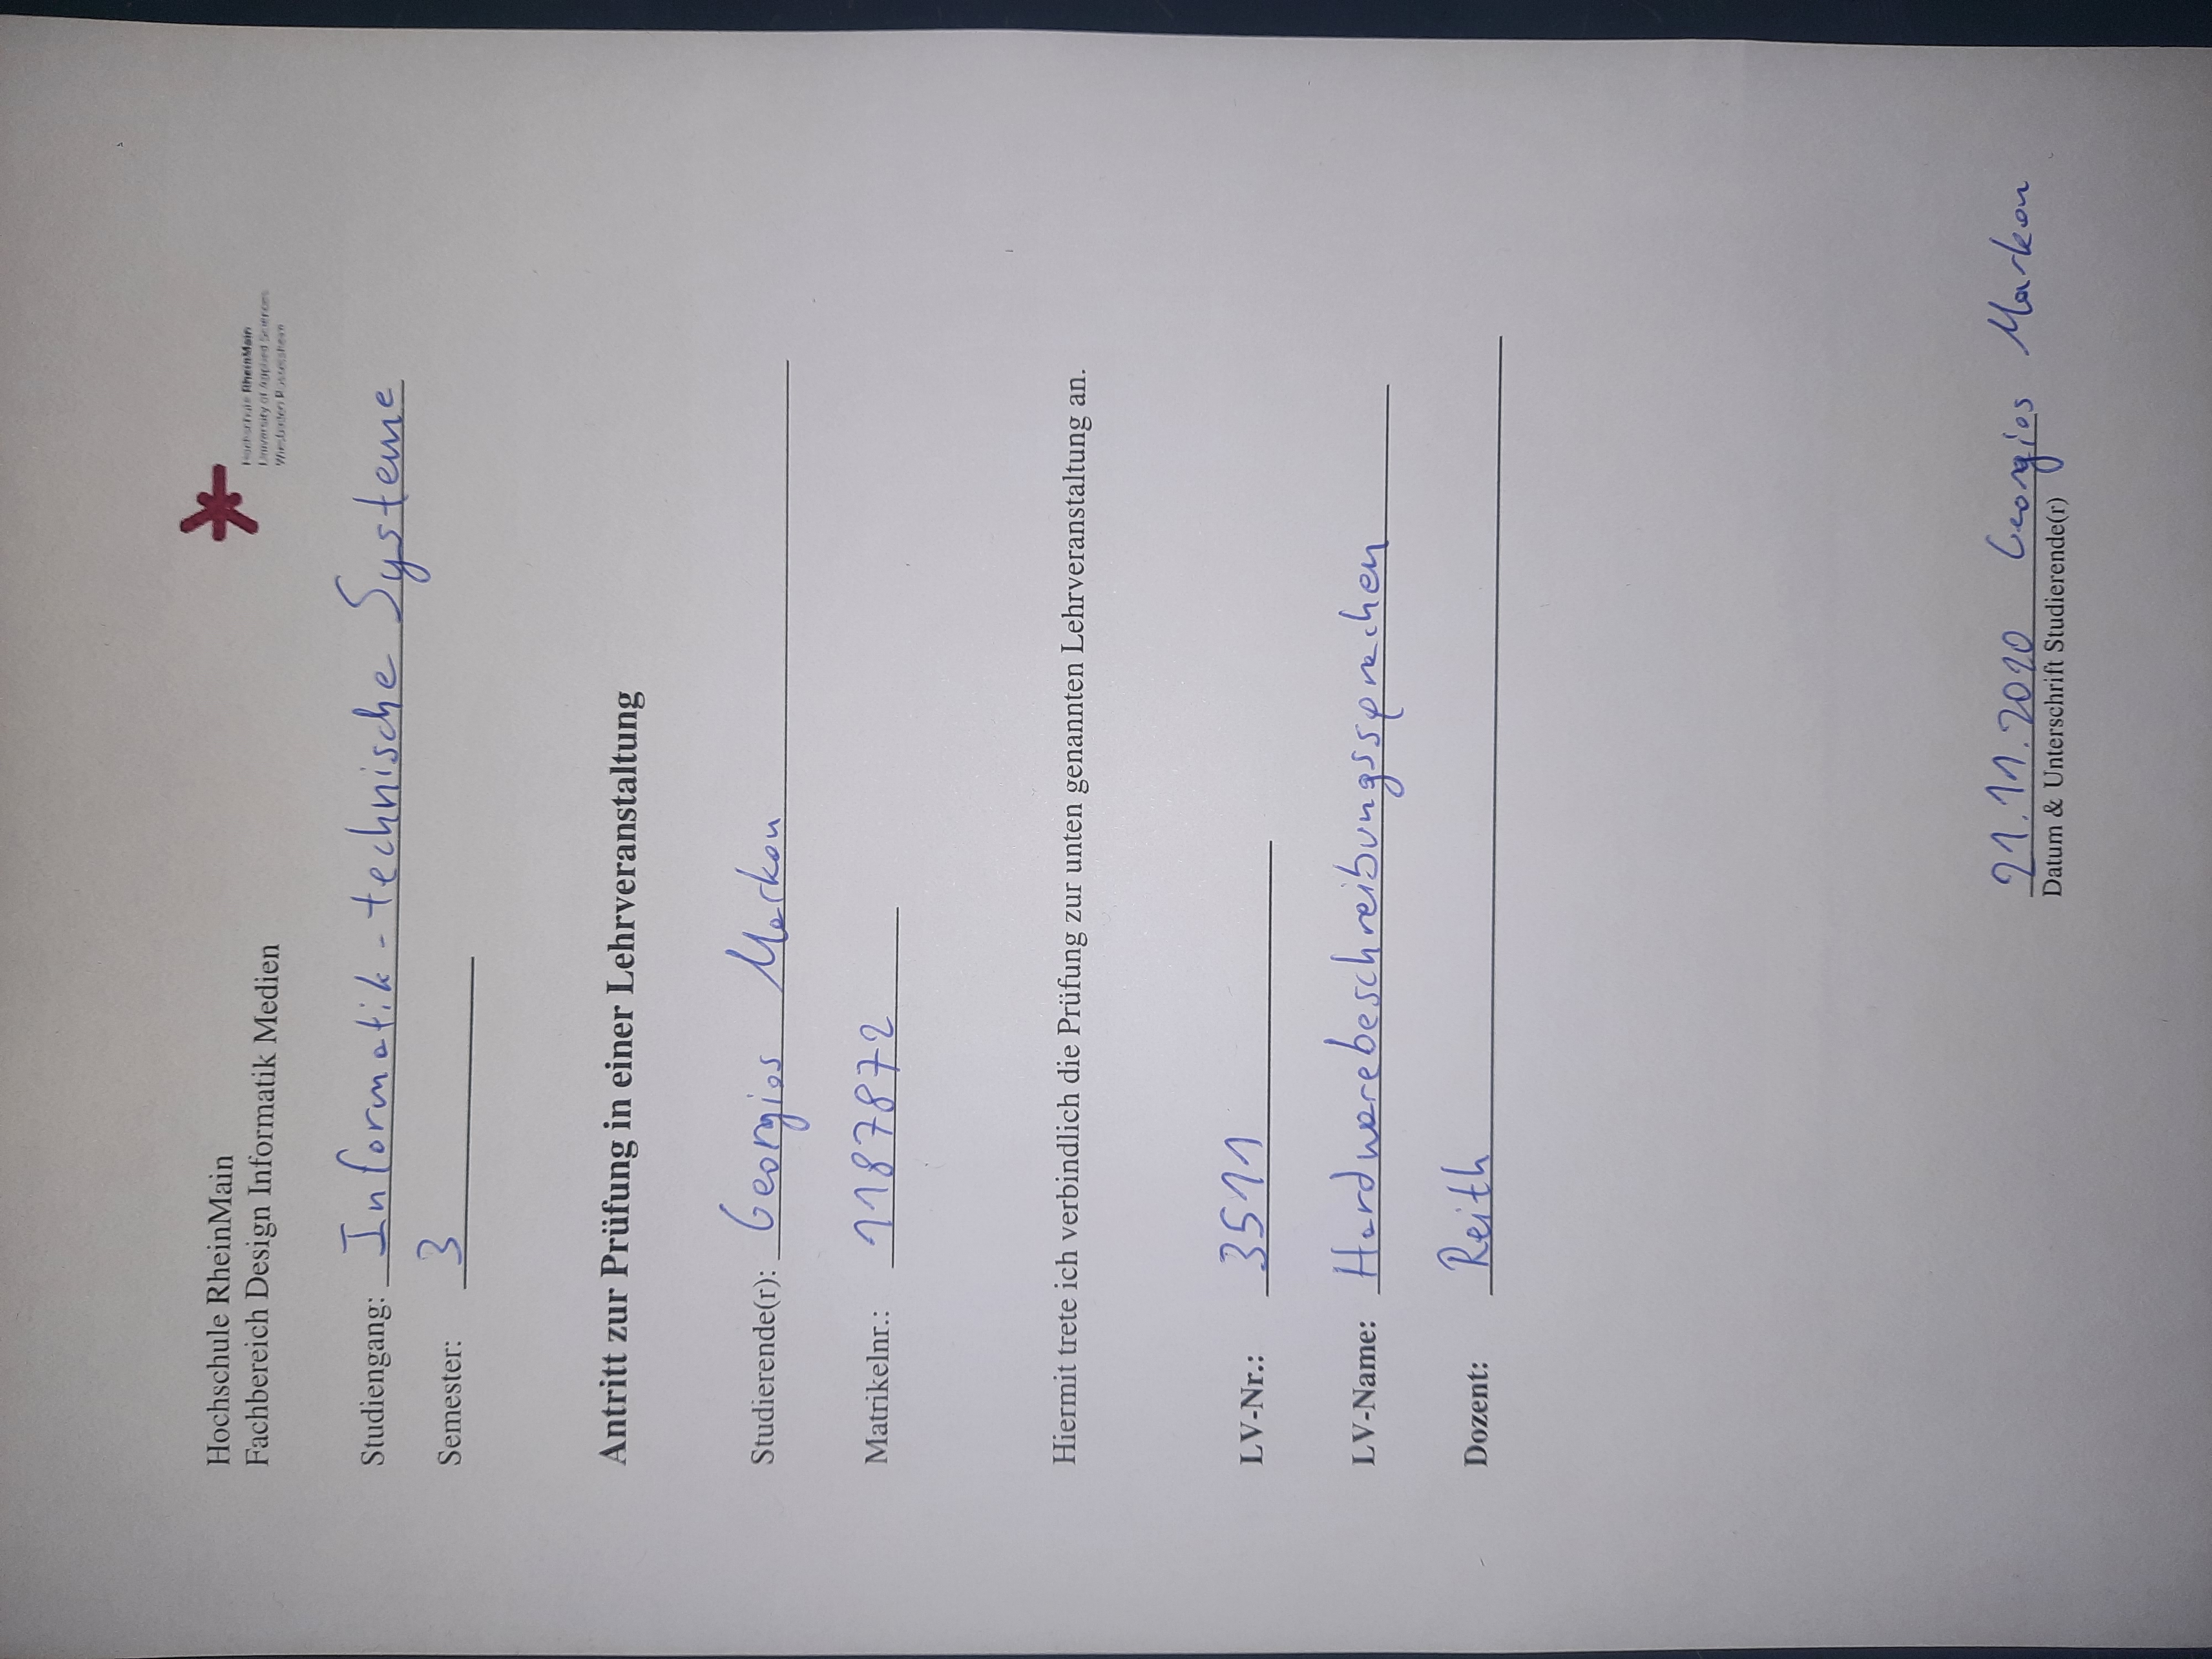 Hochschule RheinMain
Fachbereich Design Informatik Medien
Hochschule RheinMain
University of Applied Sciences
Wiesbaden Rüsselsheim
Studiengang: Informatik-technische Systeme
Semester: 3
Antritt zur Prüfung in einer Lehrveranstaltung
Studierende(r): Georgios Markou
Matrikelnr.: 1187872
Hiermit trete ich verbindlich die Prüfung zur unten genannten Lehrveranstaltung an.
LV-Nr.: 3511
LV-Name: Hardwarebeschreibungssprachen
Dozent: Reith
21.11.2020 Georgios Markou
Datum & Unterschrift Studierende(r)